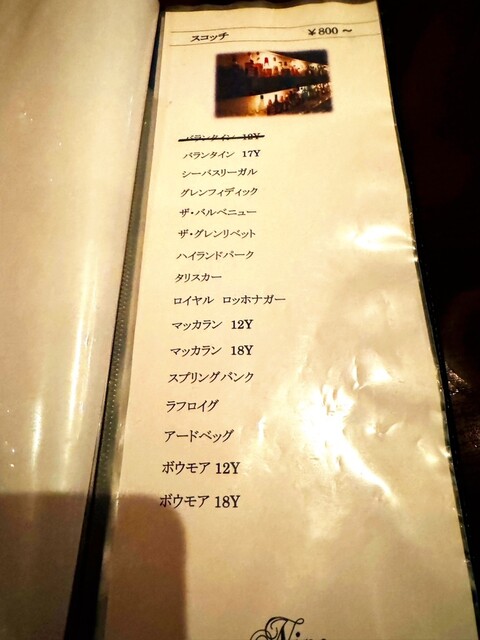 スコッチ ￥800～
バランタイン 12Y
バランタイン 17Y
シーバスリーガル
グレンフィディック
ザ・バルベニュー
ザ・グレンリベット
ハイランドパーク
タリスカー
ロイヤル ロッホナガー
マッカラン 12Y
マッカラン 18Y
スプリングバンク
ラフロイグ
アードベッグ
ボウモア 12Y
ボウモア 18Y